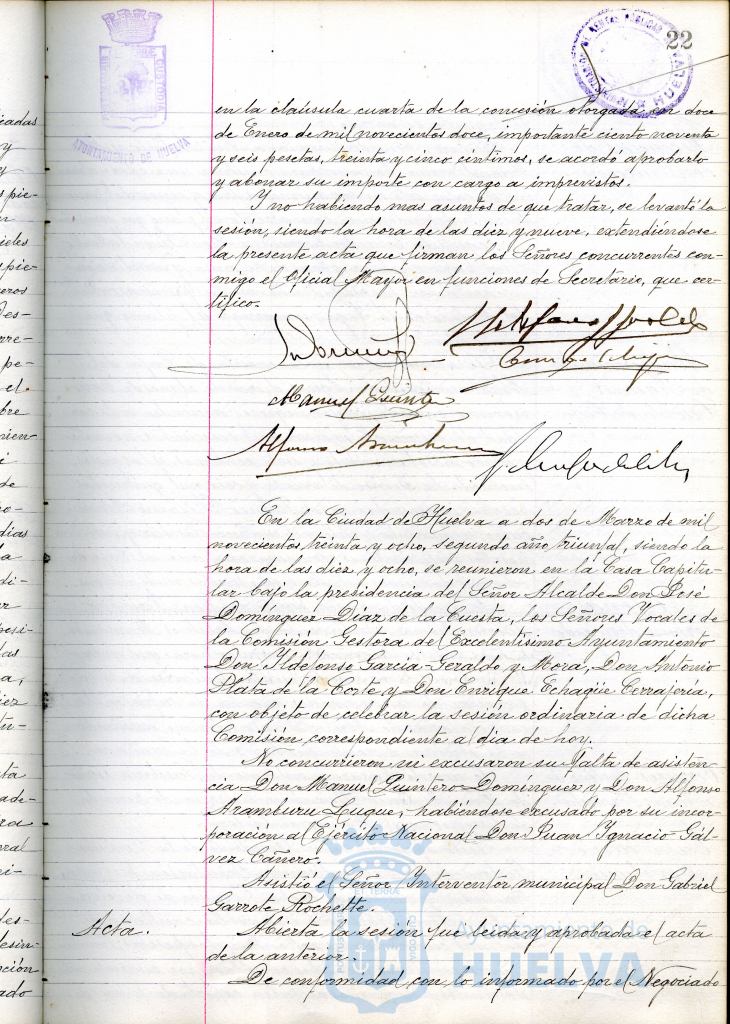 22
AYUNTAMIENTO DE HUELVA
en la cláusula cuarta de la concesión otorgada con doce
de Enero de mil novecientos doce, importante ciento noventa
y seis pesetas, treinta y cinco céntimos, se acordó aprobarlo
y abonar su importe con cargo a imprevistos.
Y no habiendo mas asuntos de que tratar, se levantó la
sesión, siendo la hora de las diez y nueve, extendiéndose
la presente acta que firman los Señores concurrentes con-
migo el Oficial Mayor en funciones de Secretario, que cer-
tifico.
Manuel Quintero
Alfonso
En la Ciudad de Huelva a dos de Marzo de mil
novecientos treinta y ocho, segundo año triunfal, siendo la
hora de las diez y ocho, se reunieron en la Casa Capitu-
lar bajo la presidencia del Señor Alcalde Don José
Domínguez Díaz de la Cuesta, los Señores Vocales de
la Comisión Gestora del Excelentísimo Ayuntamiento
Don Ildefonso García-Geraldo y Mora, Don Antonio
Plata de la Corte y Don Enrique Echagüe Cerrajeria,
con objeto de celebrar la sesión ordinaria de dicha
Comisión correspondiente al dia de hoy.
No concurrieron ni excusaron su falta de asisten-
cia Don Manuel Quintero Domínguez y Don Alfonso
Aramburu Luque, habiéndose excusado por su incor-
poración al Ejército Nacional Don Juan Ygnacio Gál-
vez Cañero.
Asistió el Señor Interventor municipal Don Gabriel
Garrote Rochette.
Acta. Abierta la sesión fué leida y aprobada el acta
de la anterior.
De conformidad con lo informado por el Negociado
Ayuntamiento de
HUELVA